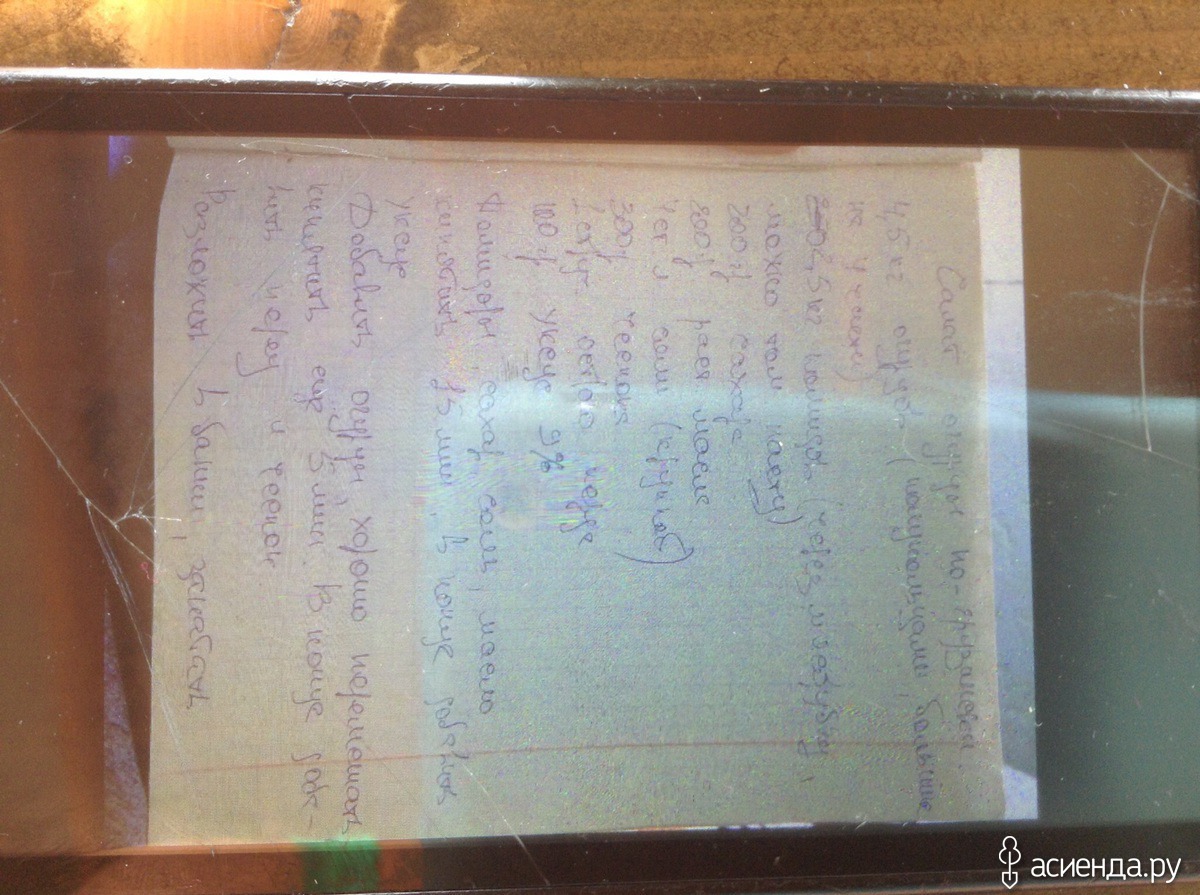 Салат огурцы по-грузински.
4,5 кг огурцов (полукольцами, большие
не у чистки)
2,5 кг помидоры (через мясорубку,
можно том пасту)
200 гр сахара
200 гр раст масла
4 ст л соли (крупной)
300 гр чеснока
1 струч. острого перца
100 гр уксус 9%
Помидоры, сахар, соль, масло
кипятить 15 мин. в конце добавить
уксус
Добавить огурцы, хорошо перемешать
кипятить еще 5 мин. В конце доба-
вить перец и чеснок
Разложить в банки, закатать
асиенда.ру